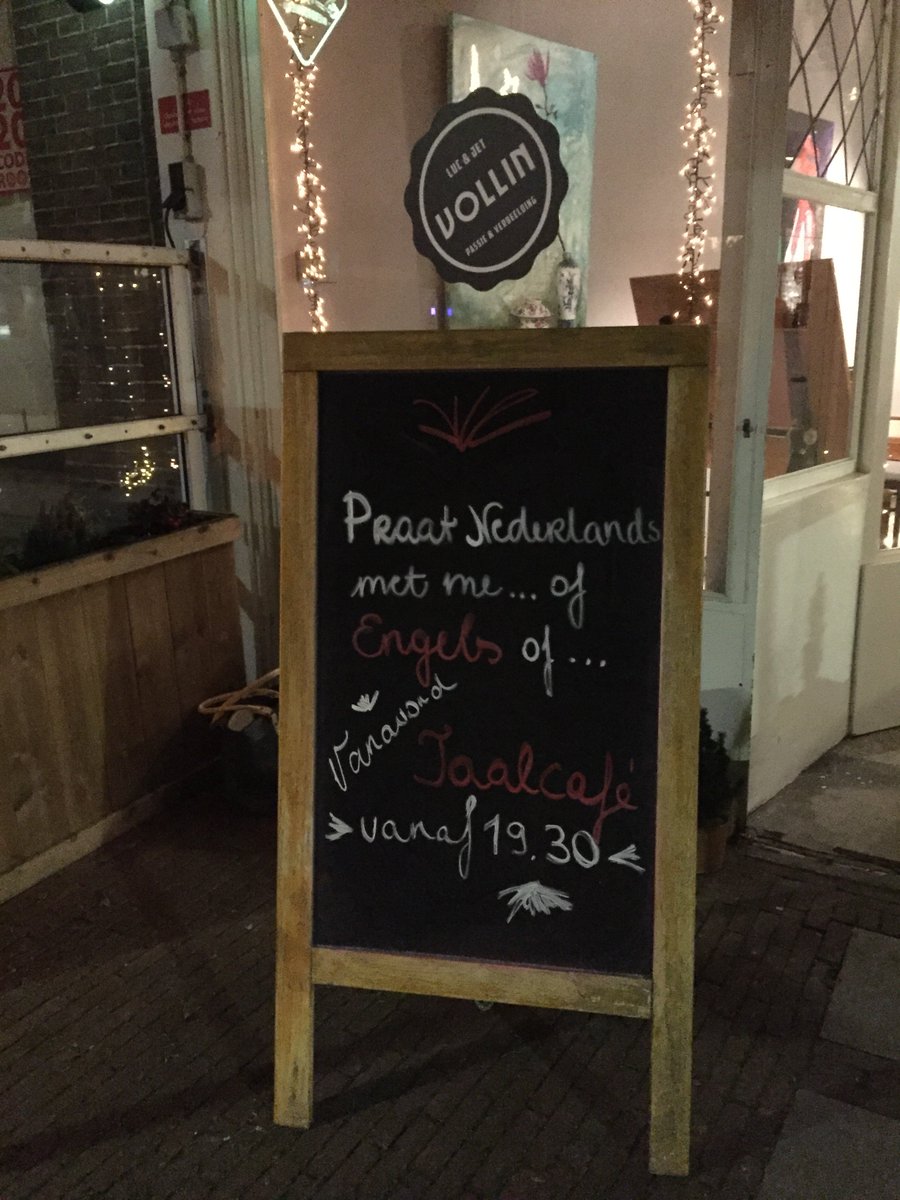 20
20
COD
ROO
LUC & JET
VOLLIN
PASSIE & VERBEELDING
Praat Nederlands
met me... of
Engels of ...
Vanavond
Taalcafé
> vanaf 19.30 <